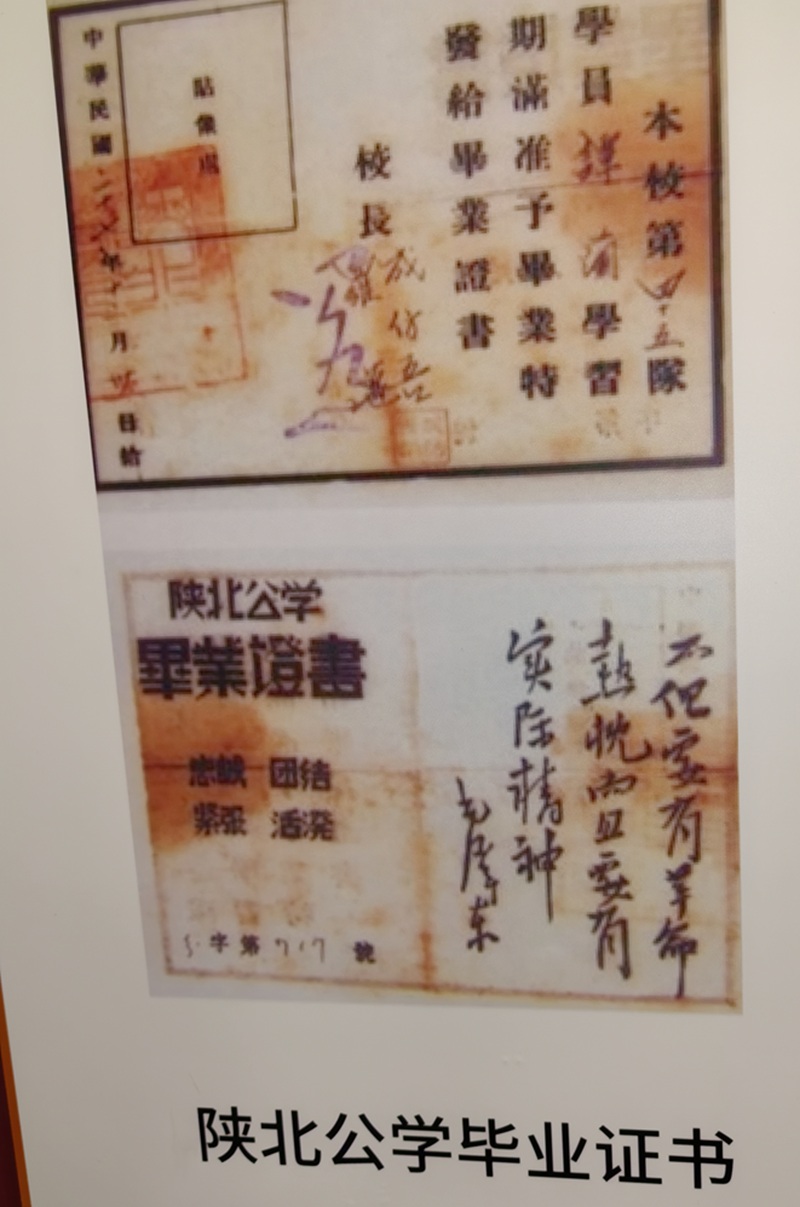 本校第四十五隊
學員譚 蒲學習
期滿准予畢業特
發給畢業證書
校長
成仿吾
羅邁
貼像處
中華民國二十七年十月 日給
陕北公学
畢業證書
忠诚 团结
紧张 活泼
字第717號
不但要有革命
热忱而且要有
实际精神
毛泽东
陕北公学毕业证书